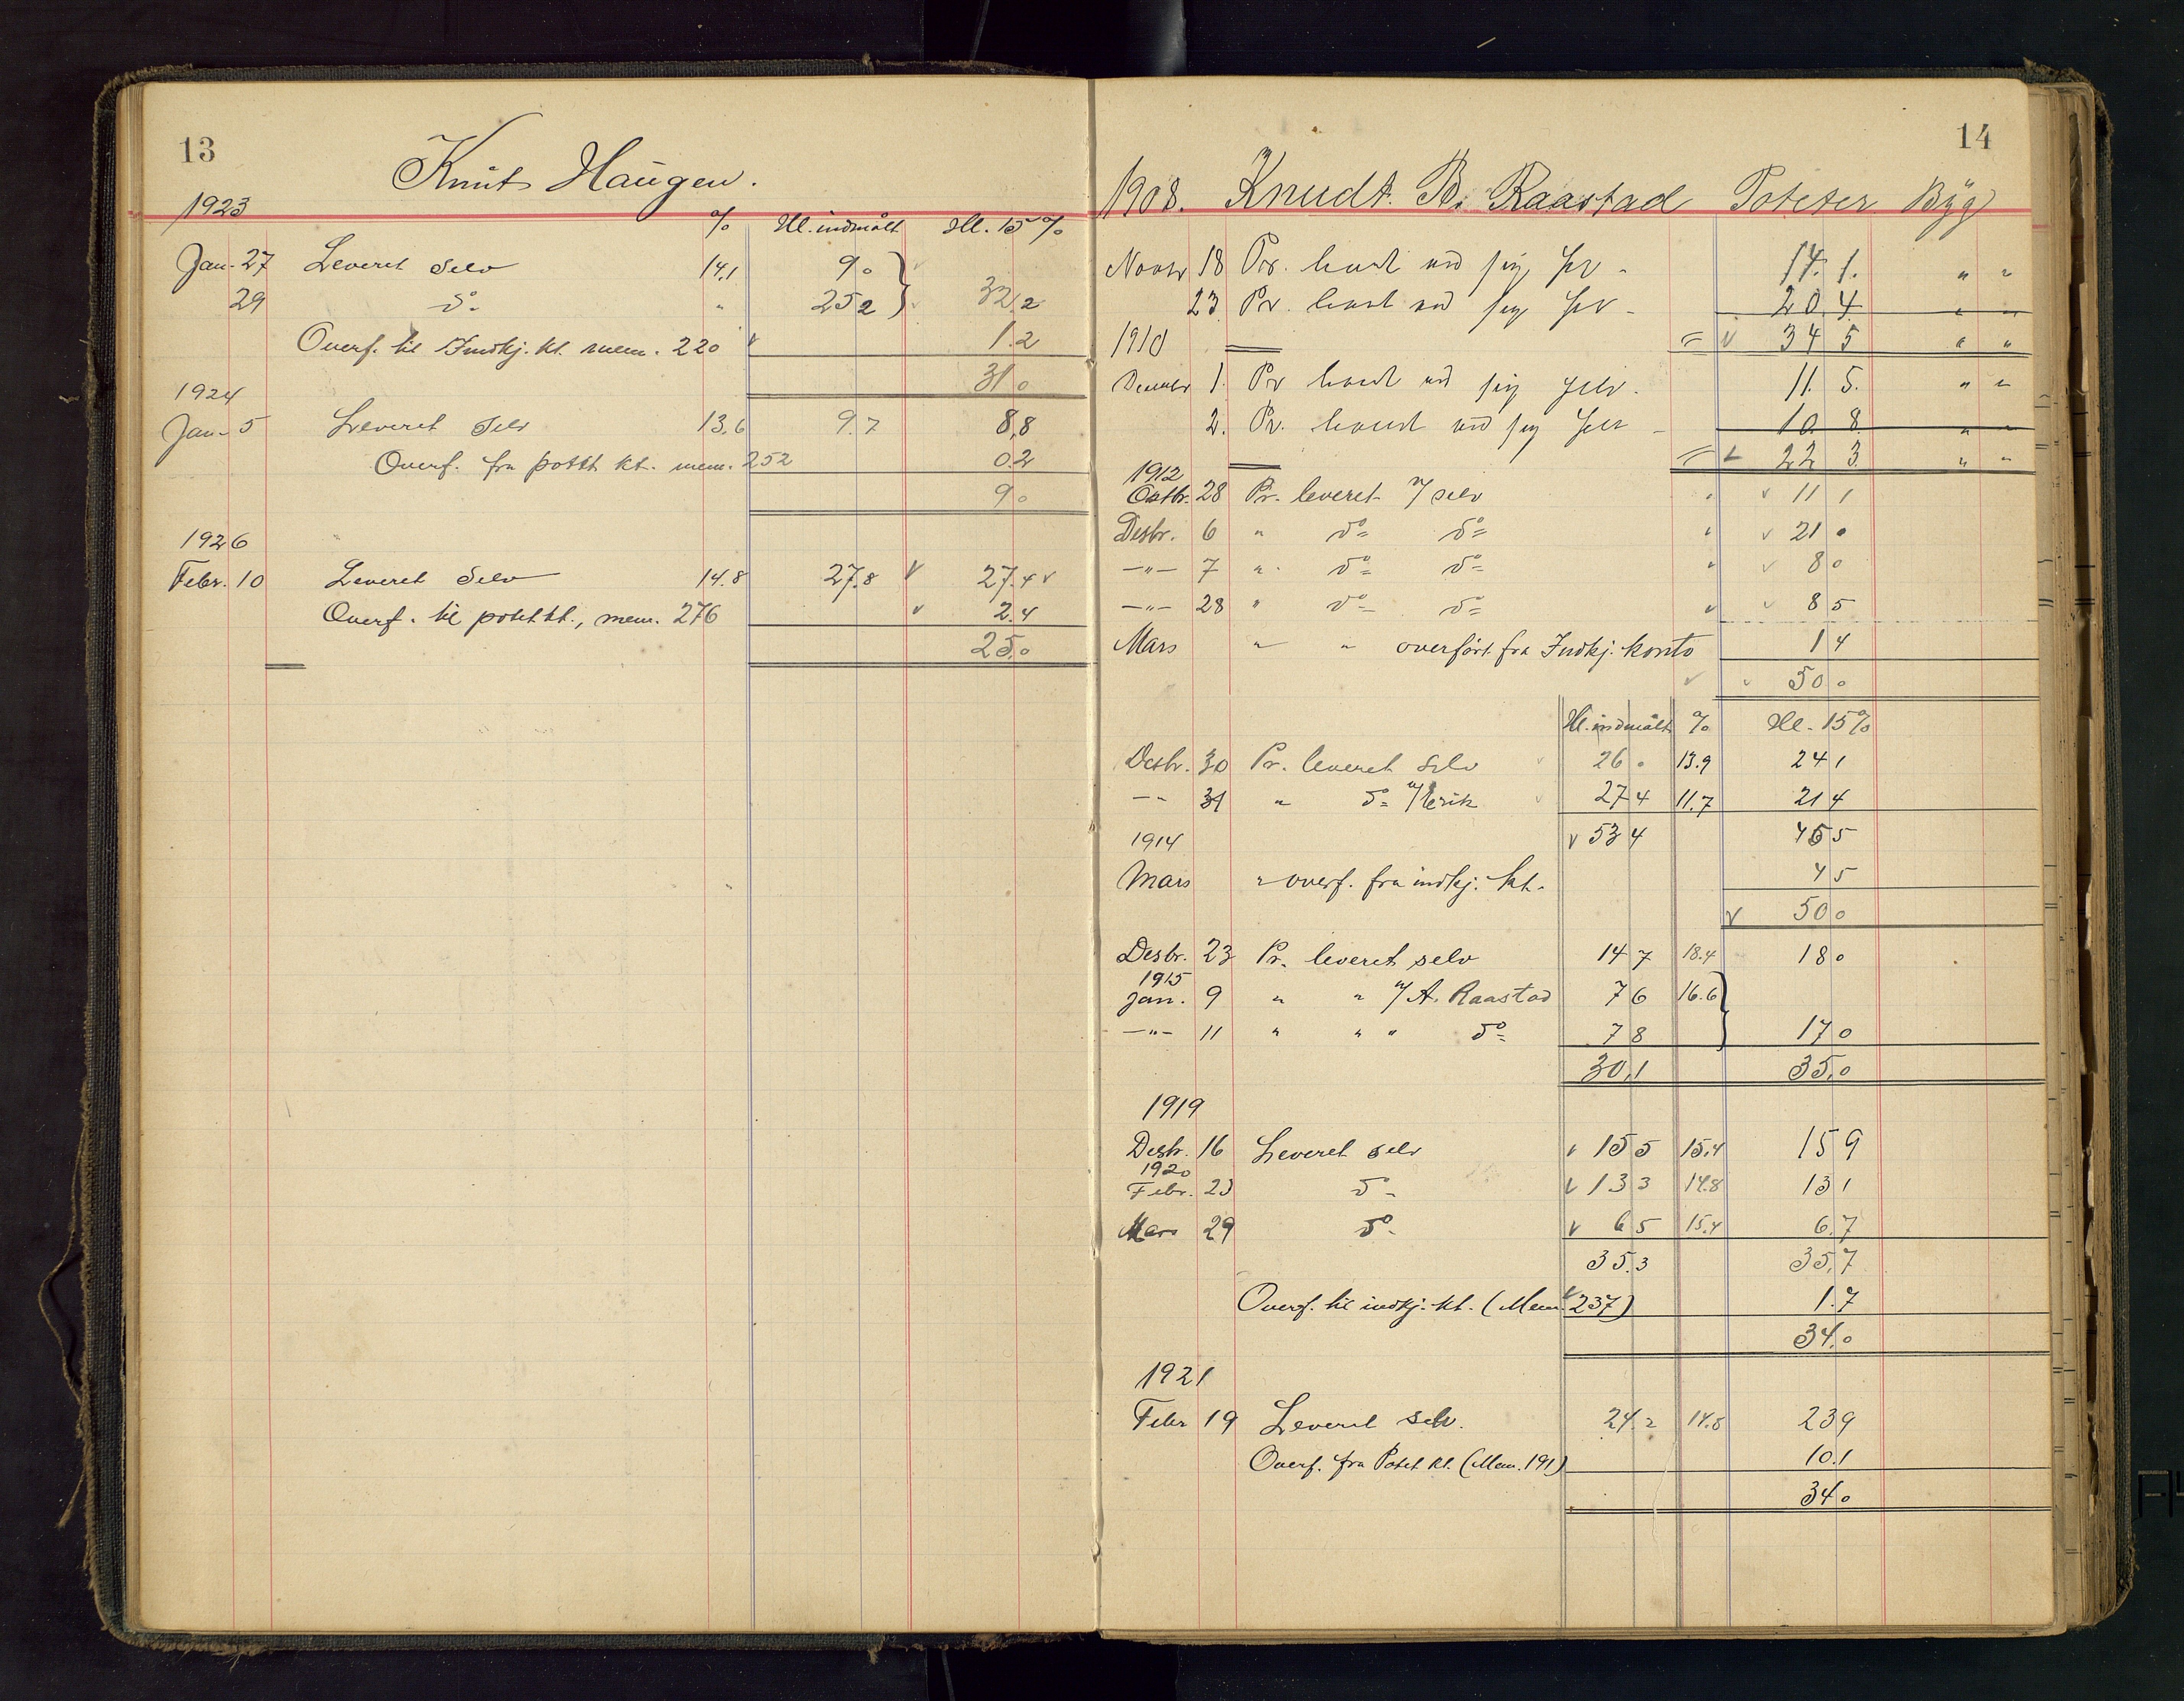 13
Knut Haugen.
1923
% Hl. indmålt Hl. 15 %
Jan. 27 Leveret Selv 14,1 9 0
29 do " 25 2 32,2
Overf. til Indkj. kt. mem. 220 1.2
31 0
1924
Jan. 5 Leveret Selv 13,6 9.7 8,8
Overf. fra potet kt. mem. 252 0.2
9 0
1926
Febr. 10 Leveret Selv 14.8 27.8 27.4
Overf. til potet kt., mem. 276 2.4
25.0
14
1908. Knudt. B. Raastad Poteter Byg
Novbr 18 Pr. levert ved sig selv - 14. 1. " "
23 Pr. levert ved sig selv - 20. 4 " "
1910 = 34 5 " "
Decembr 1. Pr levert ved sig selv - 11. 5. " "
2. Pr. levert ved sig selv - 10. 8. " "
= 22 3. " "
1912
Octbr. 28 Pr. leveret v/ selv " 11 1
Desbr. 6 " do do " 21 0
—"— 7 " do do " 8 0
—"— 28 " do do " 8 5
Mars " " overført fra Indkj. konto 1 4
50 0
Hl. indmålt % Hl. 15%
Desbr. 30 Pr. leveret selv 26 0 13.9 24 1
— " 31 " do v/ Erik 27 4 11.7 21 4
1914 53 4 45 5
Mars " overf. fra indkj. kt. 4 5
50 0
Desbr. 23 Pr. leveret selv 14 7 18.4 18 0
1915
Jan. 9 " " v/ A. Raastad 7 6 16.6
—"— 11 " " " do 7 8 17 0
30,1 35,0
1919
Desbr. 16 Leveret selv 15 5 15,4 15 9
1920
Febr. 23 do 13 3 14.8 13 1
Mars 29 do 6 5 15.4 6.7
35.3 35,7
Overf. til indkj. kt. (Mem. 237) 1.7
34.0
1921
Febr 19 Leveret selv. 24.2 14.8 23 9
Overf. fra Potet kt. (Mem. 191) 10.1
34 0